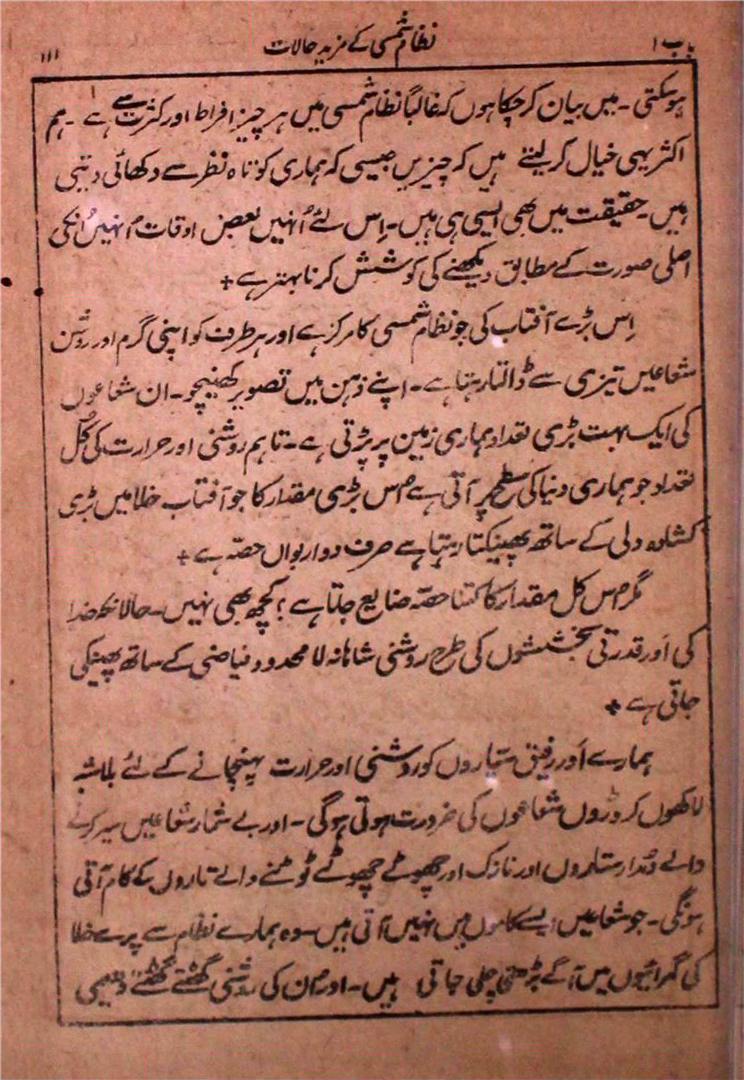 باب ۱ نظام شمسی کے مزید حالات ۱۱۱
ہوسکتی۔ میں بیان کرچکا ہوں کہ غالباً نظام شمسی میں ہر چیز افراط اور کثرت سے ہے۔ ہم
اکثر یہی خیال کرلیتے ہیں کہ چیزیں جیسی کہ ہماری کوتاہ نظر سے دکھائی دیتی
ہیں۔ حقیقت میں بھی ایسی ہی ہیں۔ اِس لئے اُنہیں بعض اوقات اُنہیں اُنکی
اصلی صورت کے مطابق دیکھنے کی کوشش کرنا بہتر ہے +
اِس بڑے آفتاب کی جو نظام شمسی کا مرکز ہے اور ہر طرف کو اپنی گرم اور روشن
شعاعیں تیزی سے ڈالتا رہتا ہے۔ اپنے ذہن میں تصویر کھینچو۔ ان شعاعوں
کی ایک بہت بڑی تعداد ہماری زمین پر پڑتی ہے۔ تاہم روشنی اور حرارت کی کُل
تعداد جو ہماری دنیا کی سطح پر آتی ہے اُس بڑی مقدار کا جو آفتاب خلا میں بڑی
کشادہ دلی کے ساتھ پھینکتا رہتا ہے صرف دو اربواں حصّہ ہے +
مگر اُس کل مقدار کا کتنا حصّہ ضایع جاتا ہے؟ کچھ بھی نہیں۔ حالانکہ خدا
کی اَور قدرتی بخششوں کی طرح روشنی شاہانہ لامحدود فیاضی کے ساتھ پھینکی
جاتی ہے +
ہمارے اَور رفیق سیّاروں کو روشنی اور حرارت پہنچانے کے لئے بلاشبہ
لاکھوں کروڑوں شعاعوں کی ضرورت ہوتی ہوگی۔ اور بے شمار شعاعیں سیر کرنے
والے دُمدار ستاروں اور نازک اور چھوٹے چھوٹے ٹوٹنے والے تاروں کے کام آتی
ہونگی۔ جو شعاعیں ایسے کاموں میں نہیں آتی ہیں۔ وہ ہمارے نظام سے پرے خلا
کی گہرائیوں میں آگے بڑھتی چلی جاتی ہیں۔ اور اُن کی روشنی گھٹتے گھٹتے دھیمی